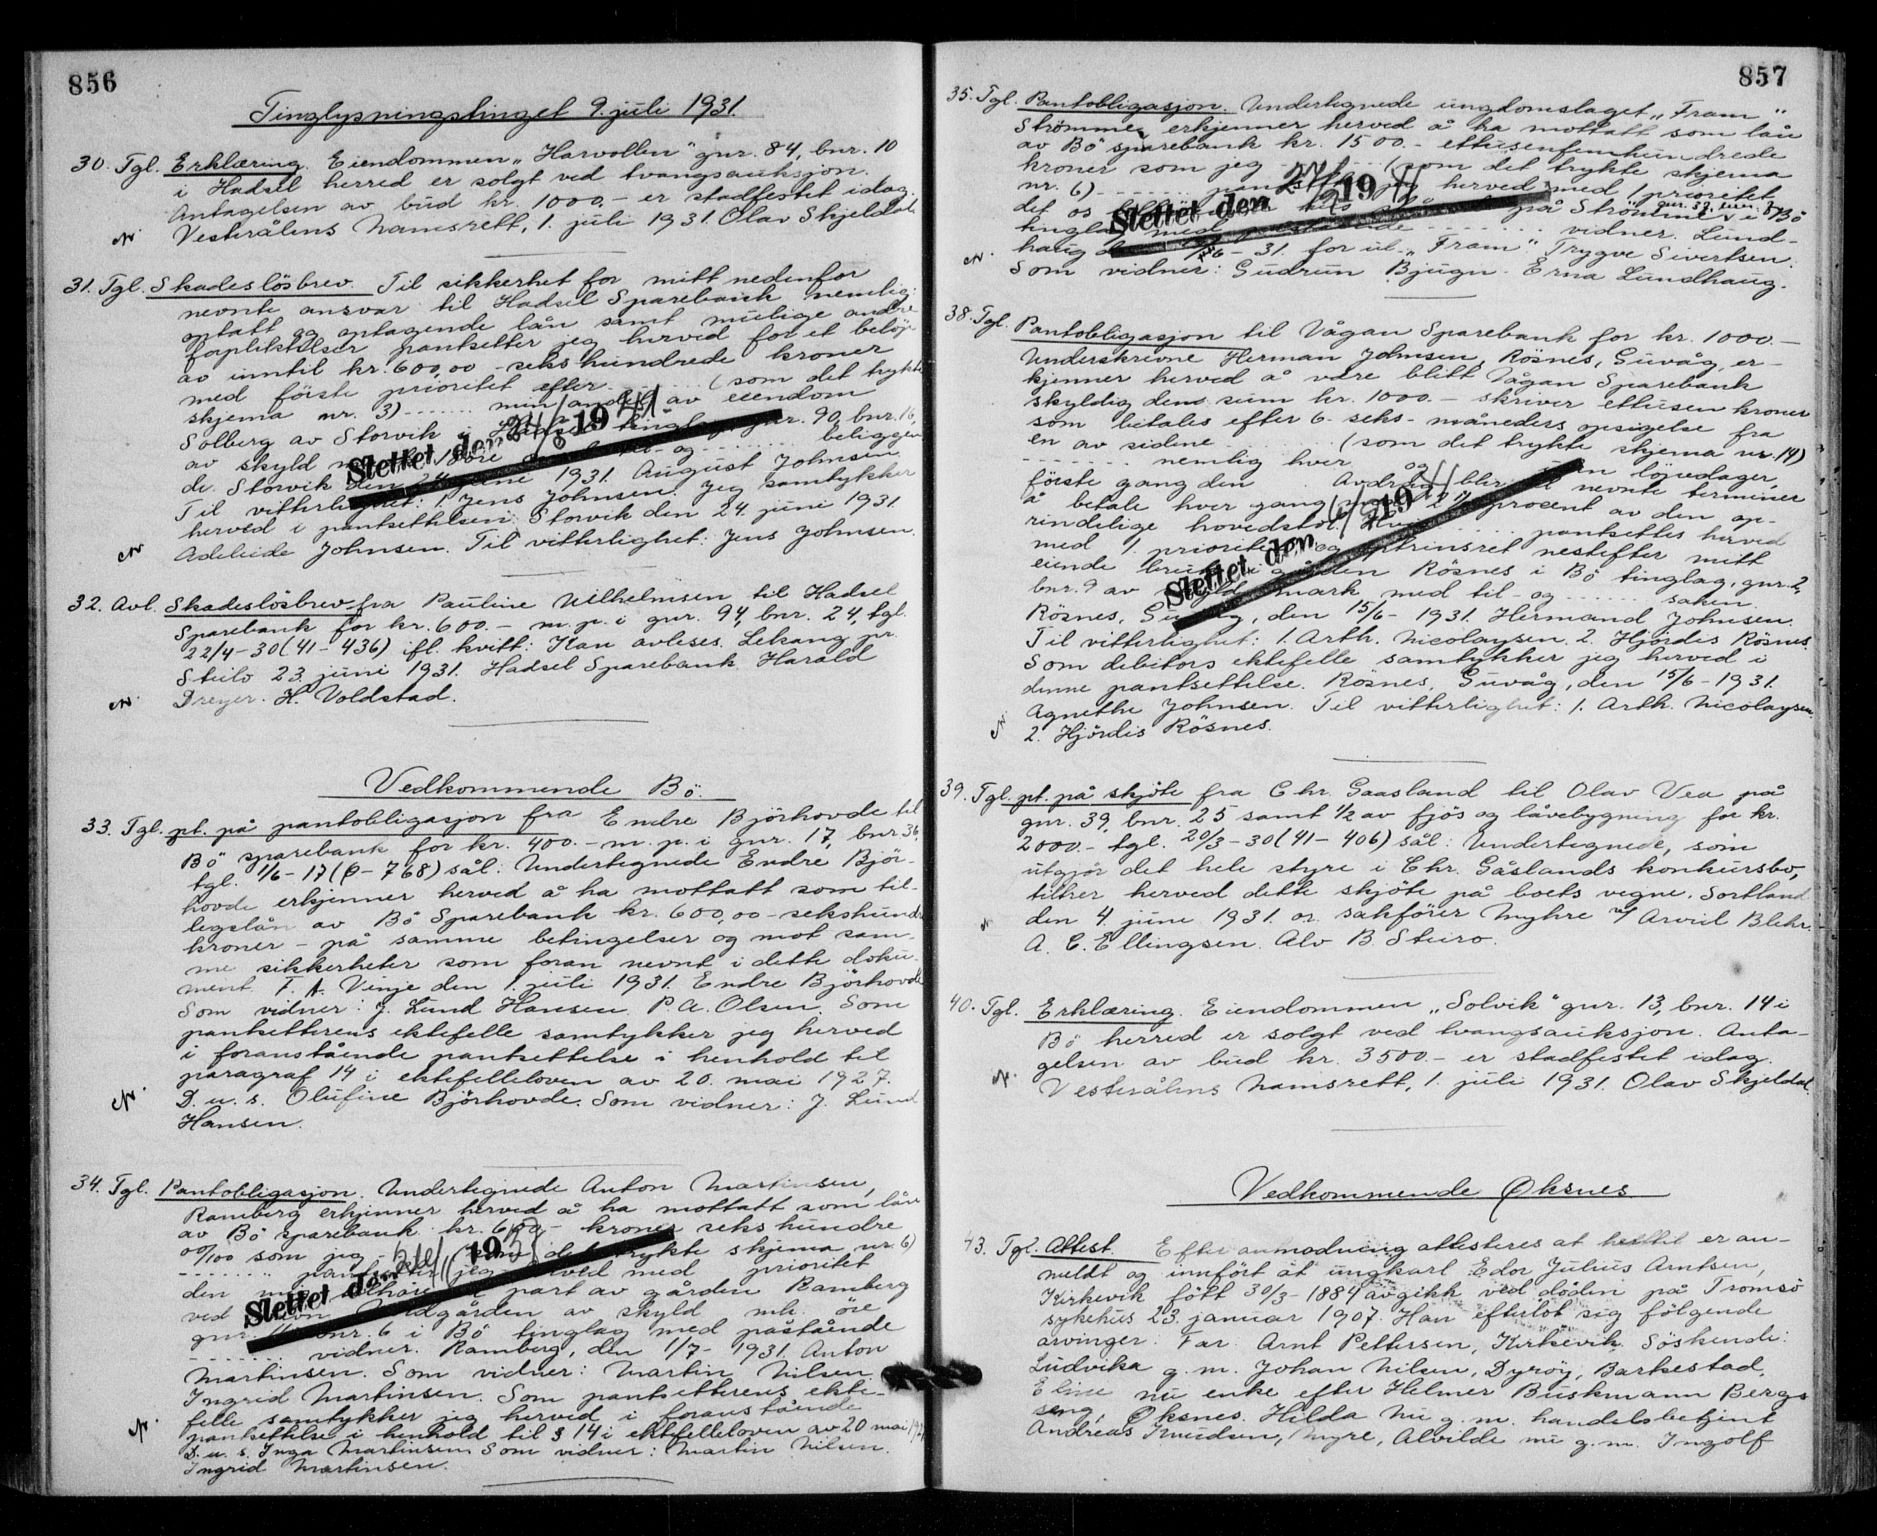 856
Tinglysningstinget 9. juli 1931.
30. Tgl. Erklæring. Eiendommen "Harvollen" gnr. 84, bnr. 10
i Hadsel herred er solgt ved tvangsauksjon.
Antagelsen av bud kr. 1000.- er stadfestet idag.
Vesterålens namsrett, 1. juli 1931. Olav Skjeldal.
31. Tgl. Skadeslösbrev. Til sikkerhet for mitt nedenfor
nevnte ansvar til Hadsel Sparebank nemlig:
optatt og optagende lån samt mulige andre
forpliktelser pantsetter jeg herved for et belöp
av inntil kr. 600,00 - sekshundrede kroner
med förste prioritet efter ........ (som det trykte
skjema nr. 3) ...... min andel av eiendom
Solberg av Storvik i tinglag, gnr. 90, bnr. 16,
av skyld öre og ........ beliggen
de. Storvik den 24 june 1931. August Johnsen.
Til vitterlighet: 1. Jens Johnsen. Jeg samtykker
herved i pantsettelsen. Storvik den 24. june 1931.
Adeleide Johnsen. Til vitterlighet: Jens Johnsen.
Slettet den 24/6 1941
32. Avl. Skadeslösbrev fra Pauline Vilhelmsen til Hadsel
Sparebank for kr. 600.- m. p. i gnr. 94, bnr. 24, tgl.
22/4-30 (41-436) ifl. kvitt: Kan avleses. Lekang pr.
Steilo 23. juni 1931. Hadsel Sparebank. Harald
Dreyer. H. Voldstad.
Vedkommende Bö.
33. Tgl. pt. på pantobligasjon fra Endre Björhovde til
Bö sparebank for kr. 400.- m. p. i gnr. 17, bnr. 36,
tgl. 1/6-17 (P-768) sål: Undertegnede Endre Björ-
hovde erkjenner herved å ha mottatt som til-
legslån av Bö Sparebank kr. 600,00 - sekshundr
kroner - på samme betingelser og mot sam-
me sikkerheter som foran nevnt i dette doku-
ment. F. A. Vinje den 1. juli 1931. Endre Björhovde
Som vidner: J. Lund Hansen. P. A. Olsen. Som
pantsetterens ektefelle samtykker jeg herved
i foranstående pantsettelse i henhold til
paragraf 14 i ektefelleloven av 20. mai 1927.
D. u. s. Olufine Björhovde. Som vidner: J. Lund
Hansen.
34. Tgl. Pantobligasjon. Undertegnede Anton Martinsen,
Ramberg erkjenner herved å ha mottatt som lån
av Bö sparebank kr. 600,- kroner seks hundre
00/100 som jeg - (som det trykte skjema nr. 6)
........ pantsetter jeg herved med prioritet
den mig part av gården Ramberg
ved navn Midgården av skyld mk. öre
gnr. bnr. 6 i Bö tinglag med påstående
........ vidner. Ramberg, den 1/7-1931. Anton
Martinsen. Som vidner: Martin Nilsen.
Ingrid Martinsen. Som pantsetterens ekte-
felle samtykker jeg herved i foranstående
pantsettelse i henhold til § 14 i ektefelleloven av 20 mai 1927
D. u. s. Inga Martinsen. Som vidner: Martin Nilsen.
Ingrid Martinsen.
Slettet den 1935
857
35. Tgl. Pantobligasjon. Undertegnede ungdomslaget "Fram"
Strömme, erkjenner herved å ha mottatt som lån
av Bö sparebank kr. 1500.- ettusenfemhundrede
kroner som jeg ........ (som det trykte skjema
nr. 6) ........ pantsetter jeg herved med 1 prioritet
det os på Strömme gnr. 37, bnr. i Bö
tinglag med påstående ........ vidner. Lund-
haug 6-31. for ul. "Fram" Trygve Sivertsen.
Som vidner: Gudrun Bjugn. Erna Lundhaug.
Slettet den 1941
38. Tgl. Pantobligasjon til Vågan Sparebank for kr. 1000.-
Underskrevne Herman Johnsen, Rösnes, Guvåg, er-
kjenner herved å være blitt Vågan Sparebank
skyldig den sum kr. 1000.- skriver ettusen kroner
som betales efter 6-seks-måneders opsigelse fra
en av sidene ........ (som det trykte skjema nr. 14)
........ nemlig hver og
förste gang den . Avdrag blir i den lövedager,
å betale hver gang nevnte terminer
procent av den op-
rindelige hovedstol. ........ pantsettes herved
med 1. prioritet og optrinsret nestefter mitt
eiende bruk i gården Rösnes i Bö tinglag, gnr. 2,
bnr. 9 av skyld mark, med til- og ........ saken.
Rösnes, Guvåg, den 15/6-1931. Hermand Johnsen.
Til vitterlighet: 1. Arth. Nicolaysen. 2. Hjördis Rösnes.
Som debitors ektefelle samtykker jeg herved i
denne pantsettelse. Rösnes, Guvåg, den 15/6-1931.
Agnethe Johnsen. Til vitterlighet: 1. Arth. Nicolaysen.
2. Hjördis Rösnes.
Slettet den 1941
39. Tgl. pt. på skjöte fra Chr. Gaasland til Olav Vea på
gnr. 39, bnr. 25 samt 1/2 av fjös og låvebygning for kr.
2000.- tgl. 20/3-30 (41-406) sål: Undertegnede, som
utgjör det hele styre i Chr. Gåslands konkursbo,
tiltrer herved dette skjöte på boets vegne. Sortland
den 4 june 1931. or. sakförer Myhre v/ Arvid Blehr.
A. C. Ellingsen. Alv B. Steiro.
40. Tgl. Erklæring. Eiendommen "Solvik" gnr. 13, bnr. 14 i
Bö herred er solgt ved tvangsauksjon. Anta-
gelsen av bud kr. 3500.- er stadfestet idag.
Vesterålens namsrett, 1. juli 1931. Olav Skjeldal.
Vedkommende Øksnes
43. Tgl. Attest. Efter anmodning attesteres at hertil er an-
meldt og innfört at ungkarl Edor Julius Arntsen,
Kirkevik født 30/3-1884 avgikk ved döden på Tromsö
sykehus 23. januar 1907. Han efterlot sig fölgende
arvinger: Far. Arnt Pettersen, Kirkevik. Söskende:
Ludvika g. m. Johan Nilsen, Dyröy, Barkestad,
Eline nu enke efter Helmer Buskmann Bergs
seng, Øksnes. Hilda nu g. m. handelsbetjent
Andreas Knudsen, Myre, Alvilde nu g. m. Ingolf